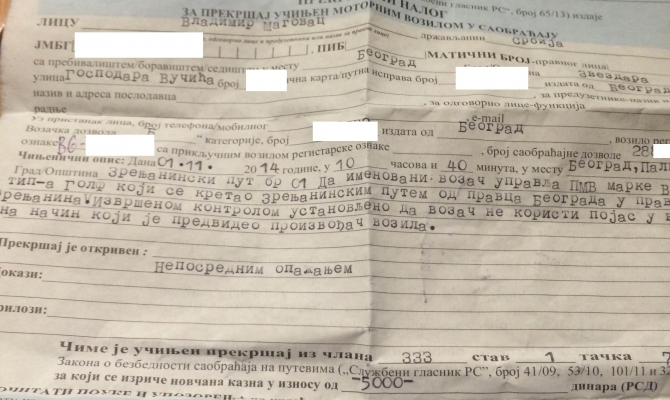 НАЛОГ бени гласник РС", број 65/13) издаје
ЗА ПРЕКРШАЈ УЧИЊЕН МОТОРНИМ ВОЗИЛОМ У САОБРАЋАЈУ
ЛИЦУ Владимир Маговац држављанин Србија
ЈМБГ ПИБ Београд МАТИЧНИ БРОЈ-правног лица
са пребивалиштем/боравиштем/седиштем у месту Звездара
улица Господара Вучића број карта/путна исправа број издата од Београд
назив и адреса послодавца , за предузетнике-назив
радње , за одговорно лице-функција
Уз пристанак лица, број телефона/мобилног , e-mail
Возачка дозвола Б категорије, број издата од Београд , возило
ознаке BG- са прикључним возилом регистарске ознаке , број саобраћајне дозволе 28
Чињенични опис: Дана 01.11. 2014 године, у 10 часова и 40 минута, у месту Београд,
Град/Општина Зрењанински пут бр 01 Да именовани возач управља ПМВ марке
тип-а Голф који се кретао Зрењанинским путем од правца Београда у
Зрењанина.Извршеном контролом установљено да возач не користи појас у
на начин који је предвидео произвођач возила.
Прекршај је откривен :
Непосредним опажањем
Докази:
Прилози:
Чиме је учињен прекршај из члана 333 став 1 тачка 7
Закона о безбедности саобраћаја на путевима („Службени гласник РС", број 41/09, 53/10, 101/11 и
за који се изриче новчана казна у износу од -5000- динара (РСД)